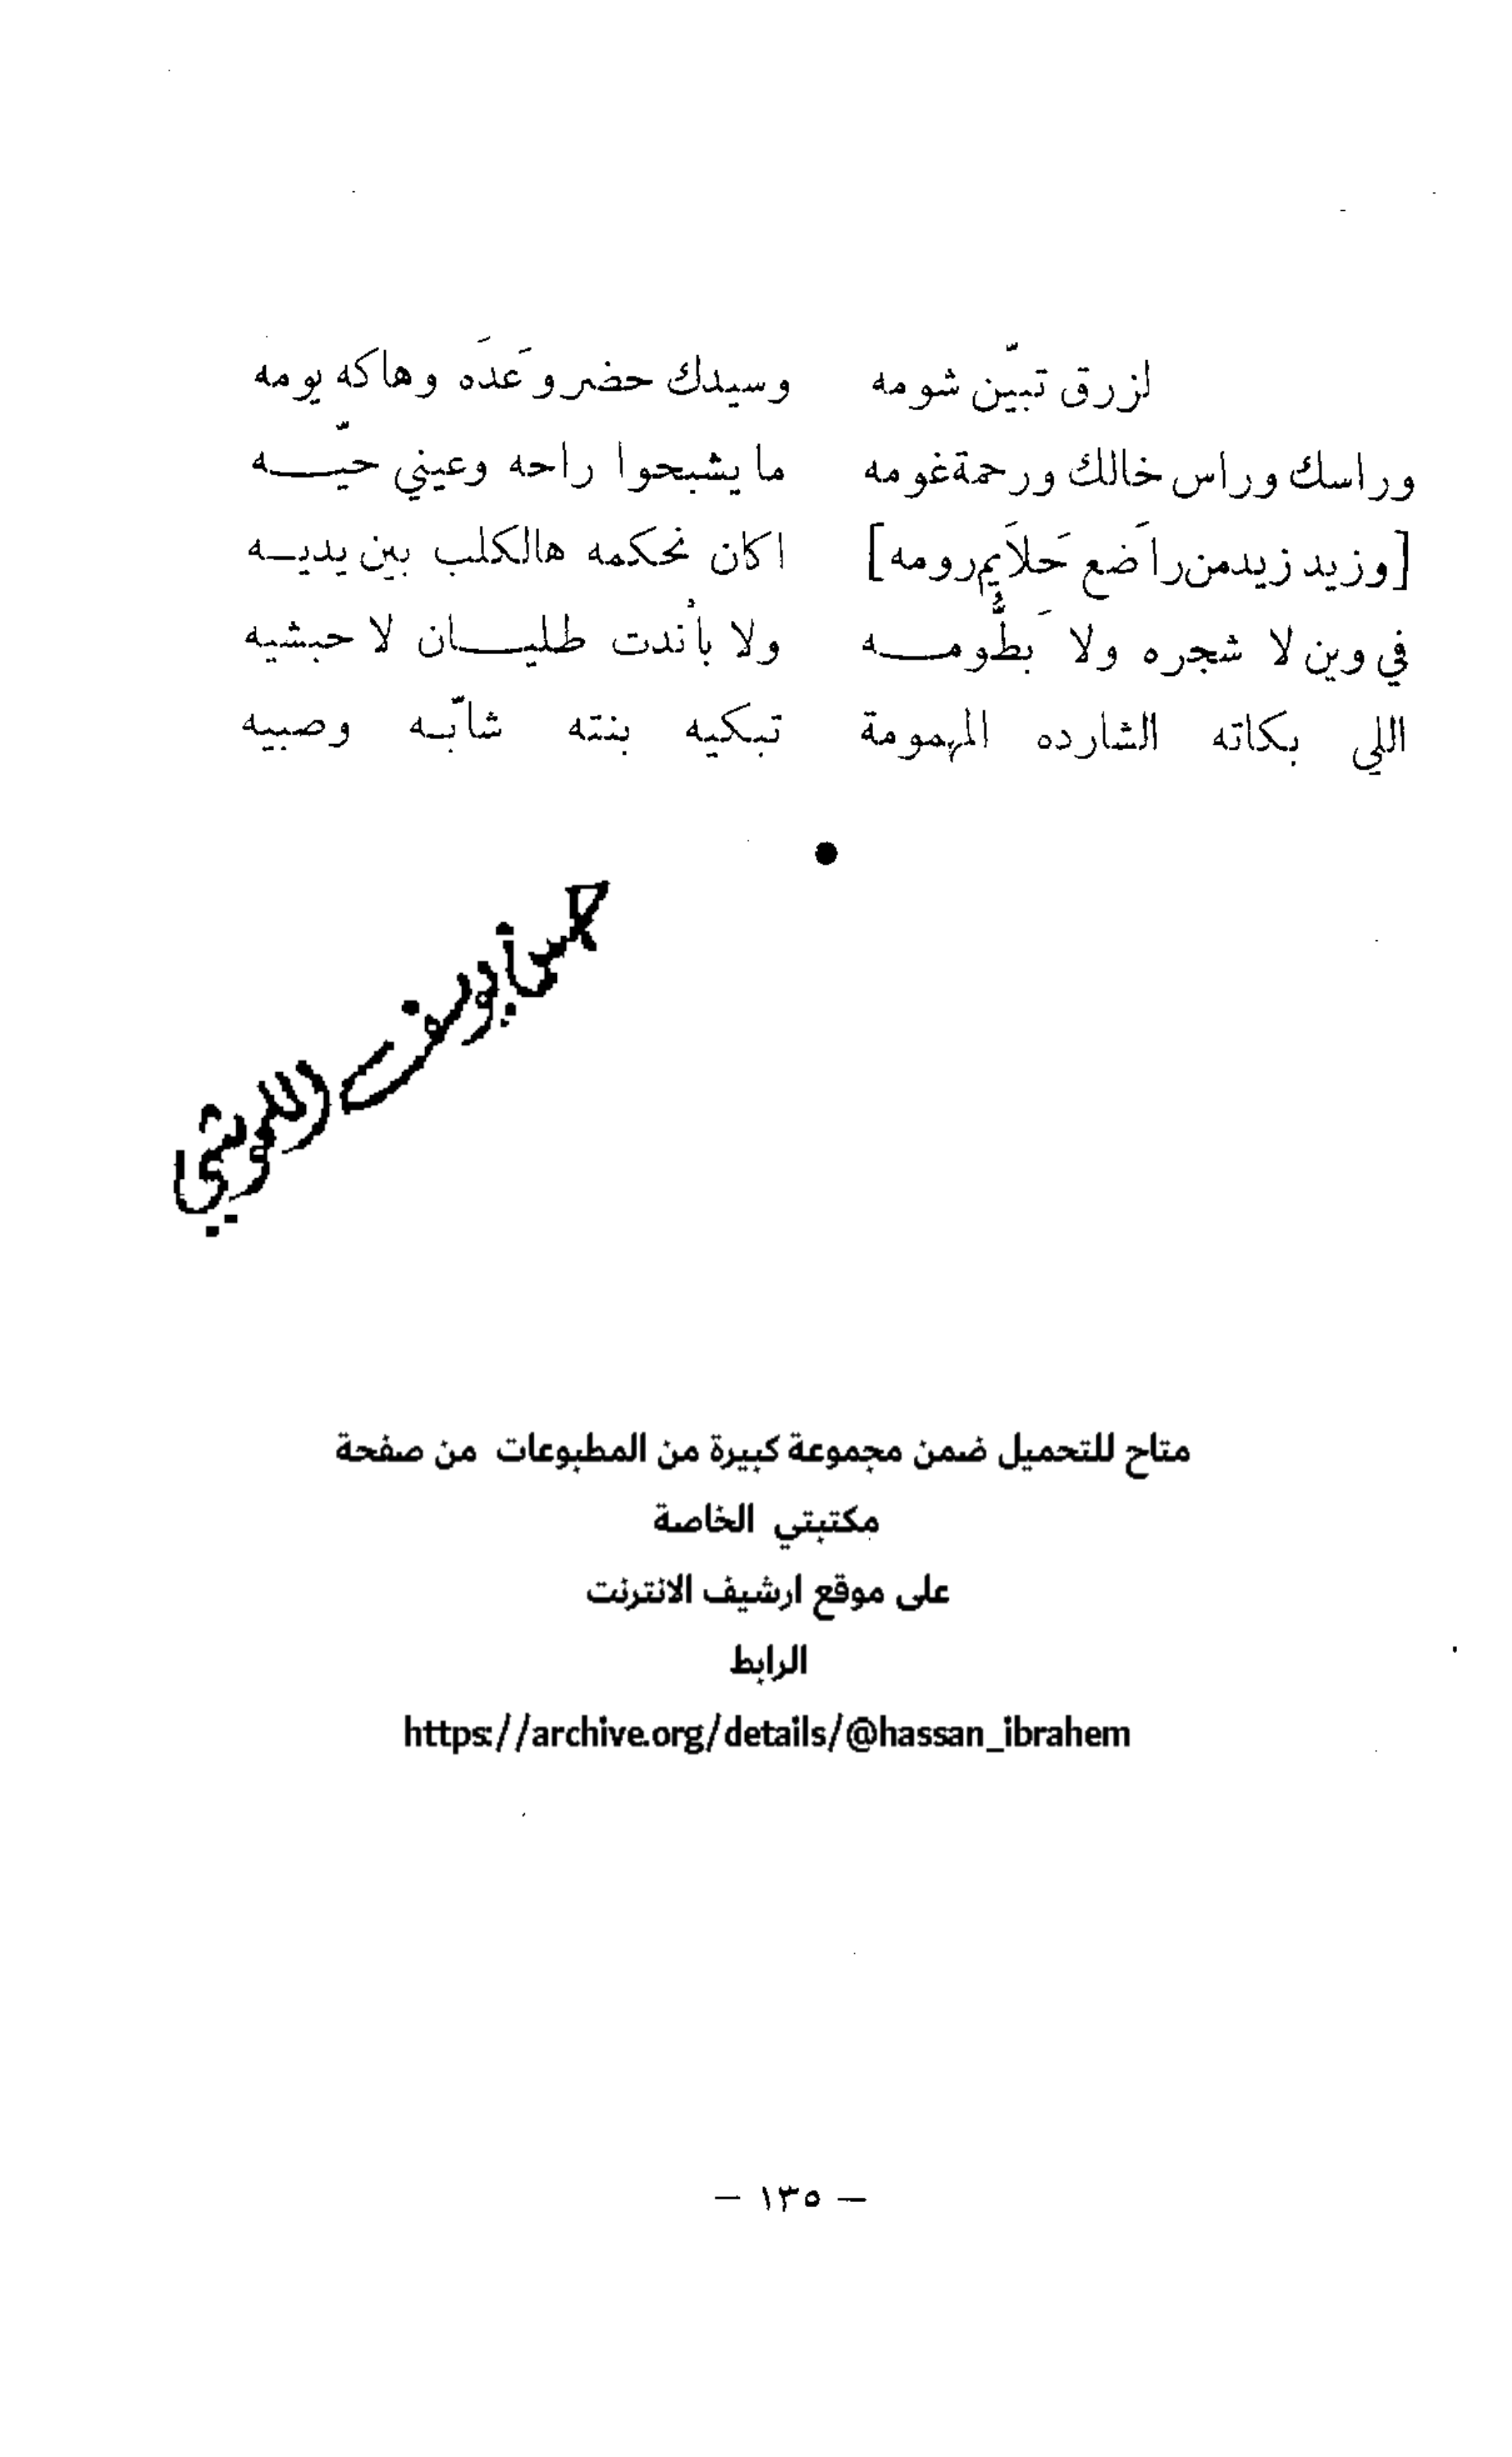 لزرق تبيّن شومه    وسيدك حضر وَعدَه وهاكه يومه
وراسك وراس خالك ورحمة غومه    ما يشبحوا راحه وعيني حيّــــه
[وزيد زيد من راَضع حَلاَيم رومه]    اكان نحكمه هالكلب بين يديــه
في وين لا شجره ولا بَطُّومــــه    ولا بأندت طليــــان لا حبشيه
اللي بكاته الشارده المهمومة    تبكيه بنته شابّـه وصبيه
متاح للتحميل ضمن مجموعة كبيرة من المطبوعات من صفحة
مكتبتي الخاصة
على موقع ارشيف الانترنت
الرابط
https://archive.org/details/@hassan_ibrahem
— ١٣٥ —